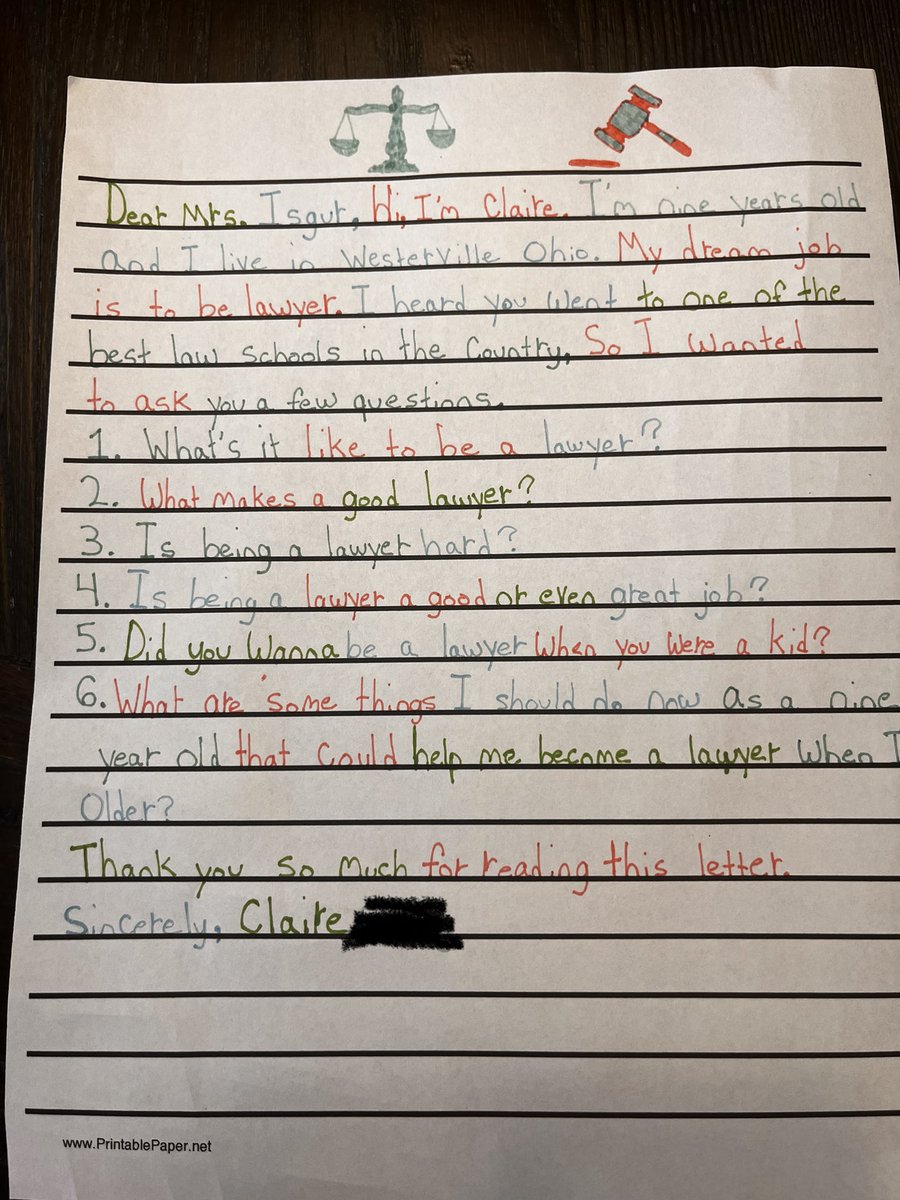 Dear Mrs. Isgur, Hi, I'm Claire. I'm nine years old
and I live in Westerville Ohio. My dream job
is to be lawyer. I heard you went to one of the
best law schools in the Country, So I wanted
to ask you a few questions.
1. What's it like to be a lawyer?
2. What makes a good lawyer?
3. Is being a lawyer hard?
4. Is being a lawyer a good or even great job?
5. Did you Wanna be a lawyer When you Were a kid?
6. What are some things I should do now as a nine
year old that Could help me become a lawyer When I
Older?
Thank you so much for reading this letter.
Sincerely, Claire
www.PrintablePaper.net